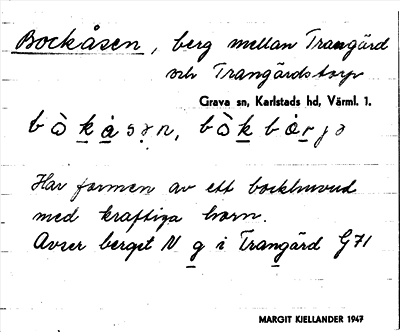 Bockåsen, berg mellan Trangärd
och Trangärdstorp
Grava sn, Karlstads hd, Värml. l.
bòkåsən, bòkbårjə
Har formen av ett bockhuvud
med kraftiga horn.
Avser berget N g i Trangärd G71
MARGIT KIELLANDER 1947